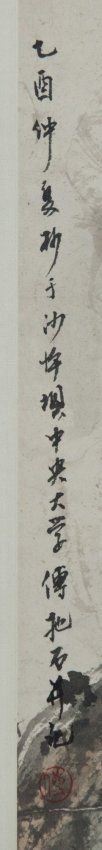 乙酉仲夏抄于沙坪壩中央大学傅抱石并记